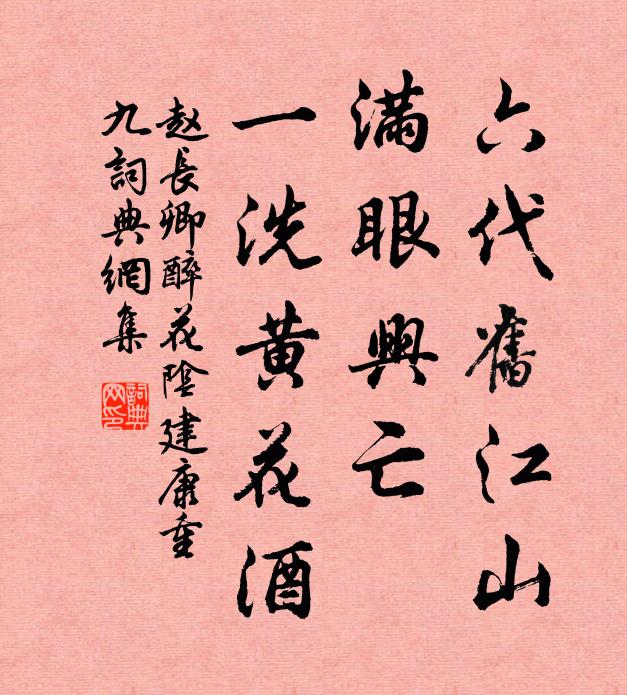 六代舊江山
滿眼興亡
一洗黄花酒
赵長卿醉花陰建康重
九詞典網集
詞典
网印